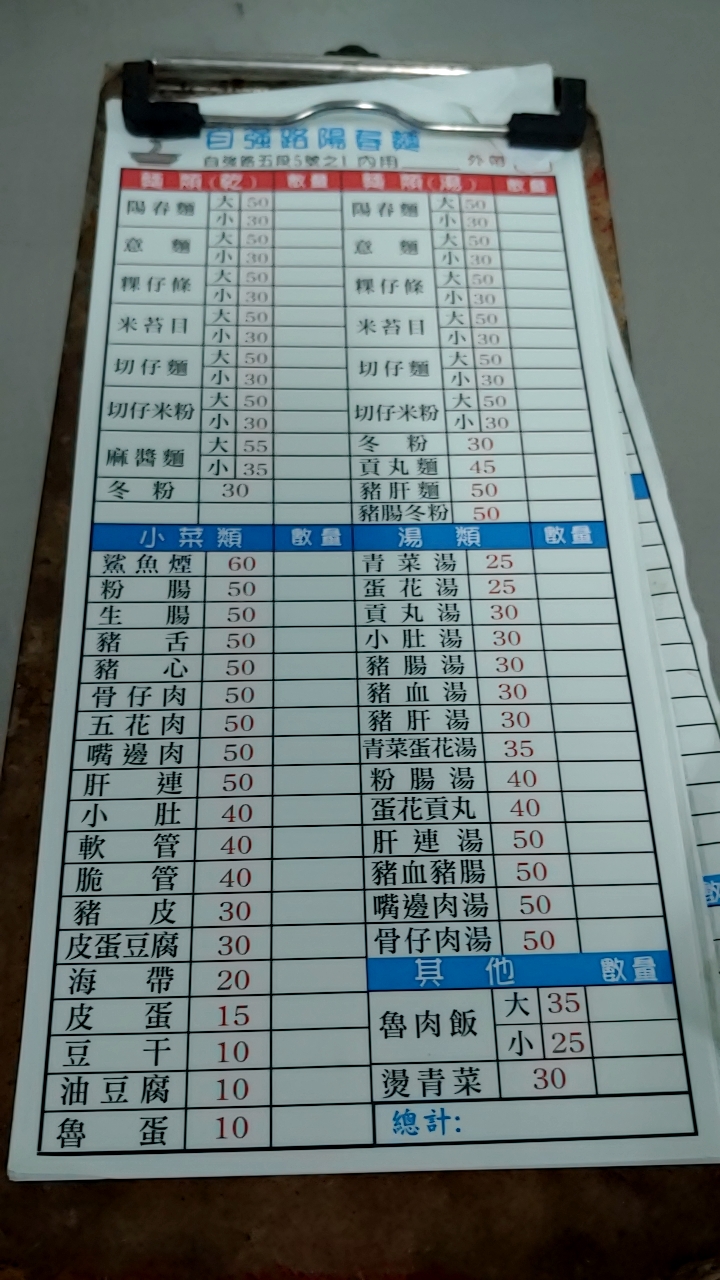 自強路陽春麵
自強路五段5號之1 內用 外帶
麵類(乾) 數量 麵類(湯) 數量
陽春麵 大 50 陽春麵 大 50
小 30 小 30
意麵 大 50 意麵 大 50
小 30 小 30
粿仔條 大 50 粿仔條 大 50
小 30 小 30
米苔目 大 50 米苔目 大 50
小 30 小 30
切仔麵 大 50 切仔麵 大 50
小 30 小 30
切仔米粉 大 50 切仔米粉 大 50
小 30 小 30
麻醬麵 大 55 冬粉 30
小 35 貢丸麵 45
冬粉 30 豬肝麵 50
豬腸冬粉 50
小菜類 數量 湯類 數量
鯊魚煙 60 青菜湯 25
粉腸 50 蛋花湯 25
生腸 50 貢丸湯 30
豬舌 50 小肚湯 30
豬心 50 豬腸湯 30
骨仔肉 50 豬血湯 30
五花肉 50 豬肝湯 30
嘴邊肉 50 青菜蛋花湯 35
肝連 50 粉腸湯 40
小肚 40 蛋花貢丸 40
軟管 40 肝連湯 50
脆管 40 豬血豬腸 50
豬皮 30 嘴邊肉湯 50
皮蛋豆腐 30 骨仔肉湯 50
海帶 20 其他 數量
皮蛋 15 魯肉飯 大 35
豆干 10 小 25
油豆腐 10 燙青菜 30
魯蛋 10 總計: